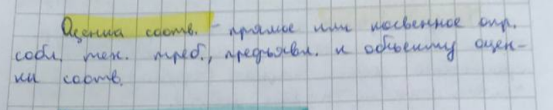 Оценка соотв. - прямое или косвенное опр.
собл. тех. треб., предъявл. к объекту оцен-
ки соотв.